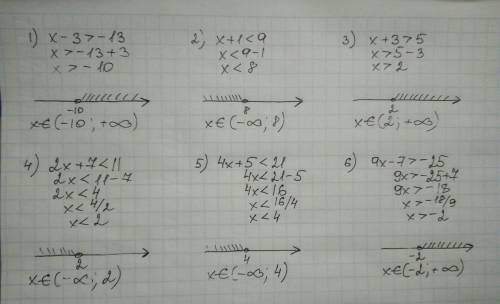 1) x-3>-13
x>-13+3
x>-10
-10
x∈(-10;+∞)
2) x+1<9
x<9-1
x<8
8
x∈(-∞;8)
3) x+3>5
x>5-3
x>2
2
x∈(2;+∞)
4) 2x+7<11
2x<11-7
2x<4
x<4/2
x<2
2
x∈(-∞;2)
5) 4x+5<21
4x<21-5
4x<16
x<16/4
x<4
4
x∈(-∞;4)
6) 9x-7>-25
9x>-25+7
9x>-18
x>-18/9
x>-2
-2
x∈(-2;+∞)